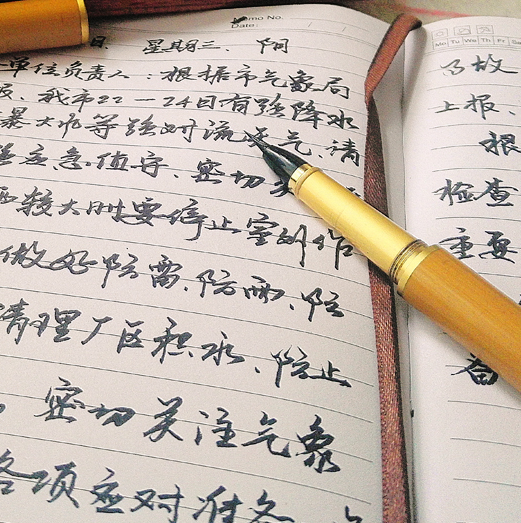 Memo No.
Date:
日. 星期三. 阴
单位负责人：根据市气象局
报、我市22－24日有强降水
暴大水等强对流天气,请
应急值守、密切关
较大时要停止室外作
做好防雷、防雨、防
清理厂区积水、防止
、密切关注气象
各项应对准备
Mo Tu We Th Fr
事故
上报、
根
检查
重要
备